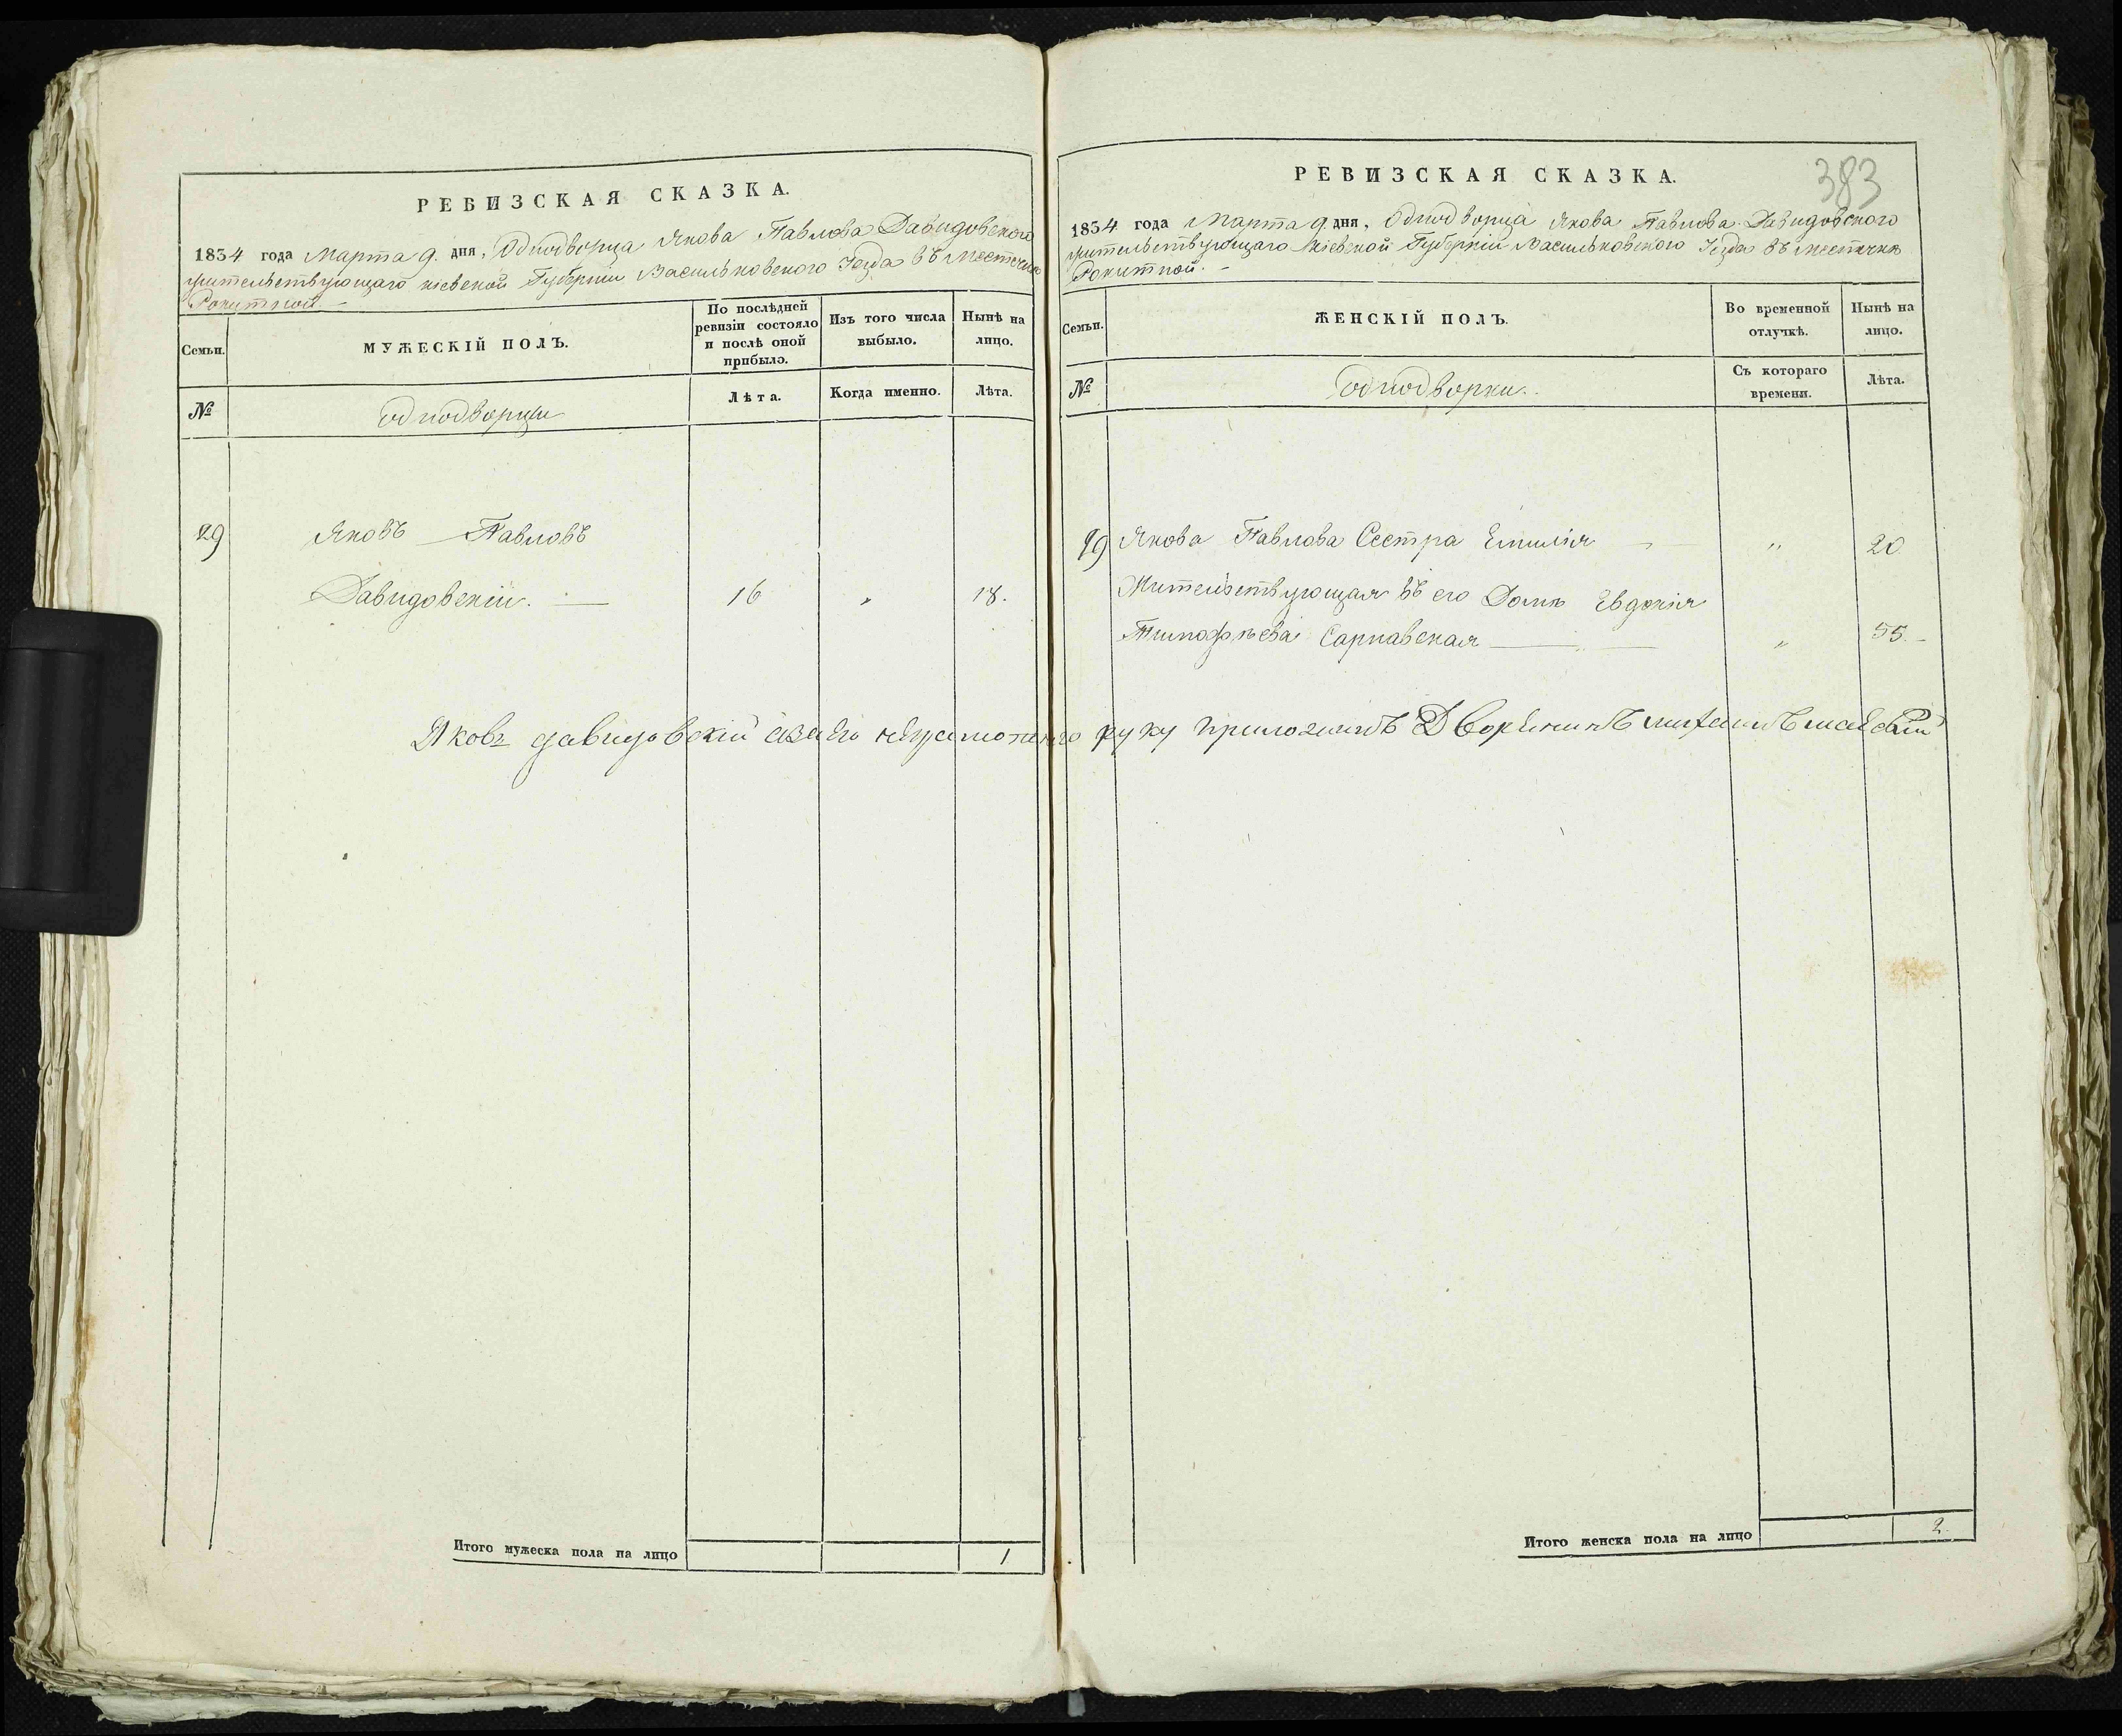 РЕВИЗСКАЯ СКАЗКА.
1834 года Марта 9. дня, Однодворца Якова Павлова Давидовского
жительствующаго Кіевской Губерніи Васильковского Уезда въ Местечке
Рокитной. –
Семьи.
МУЖЕСКІЙ ПОЛЪ.
По послѣдней ревизіи состояло и послѣ оной прибыло.
Изъ того числа выбыло.
Нынѣ на лицо.
№
однодворцы
Лѣта.
Когда именно.
Лѣта.
29 Яковъ Павловъ
Давидовскій. — 16 „ 18.
Яковъ давидовскій азаего неграмотного руку приложилъ Дворенинъ
Итого мужеска пола на лицо 1
383
РЕВИЗСКАЯ СКАЗКА.
1834 года Марта 9. дня, Однодворца Якова Павлова Давидовского
жительствующаго Кіевской Губерніи Васильковского Уезда въ Местечке
Рокитной. –
Семьи.
ЖЕНСКІЙ ПОЛЪ.
Во временной отлучкѣ.
Нынѣ на лицо.
№
однодворки.
Съ котораго времени.
Лѣта.
29 Якова Павлова Сестра Емилія — „ 20
Жительствующая въ его Доме Евдокія
Тимофѣева Сарнавская — „ 55. –
Итого женска пола на лицо 2.